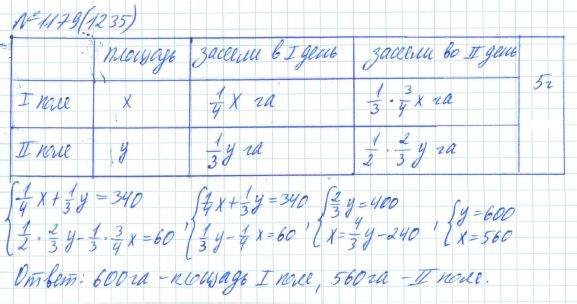 № 1179(1235)
площадь засеяли в I день засеяли во II день
I поле x 1/4 x га 1/3 · 3/4 x га 5г
II поле y 1/3 y га 1/2 · 2/3 y га
{ 1/4 x + 1/3 y = 340 , { 1/4 x + 1/3 y = 340 , { 2/3 y = 400 , { y = 600
1/2 · 2/3 y - 1/3 · 3/4 x = 60 1/3 y - 1/4 x = 60 x = 4/3 y - 240 x = 560
Ответ: 600 га - площадь I поле, 560 га - II поле.